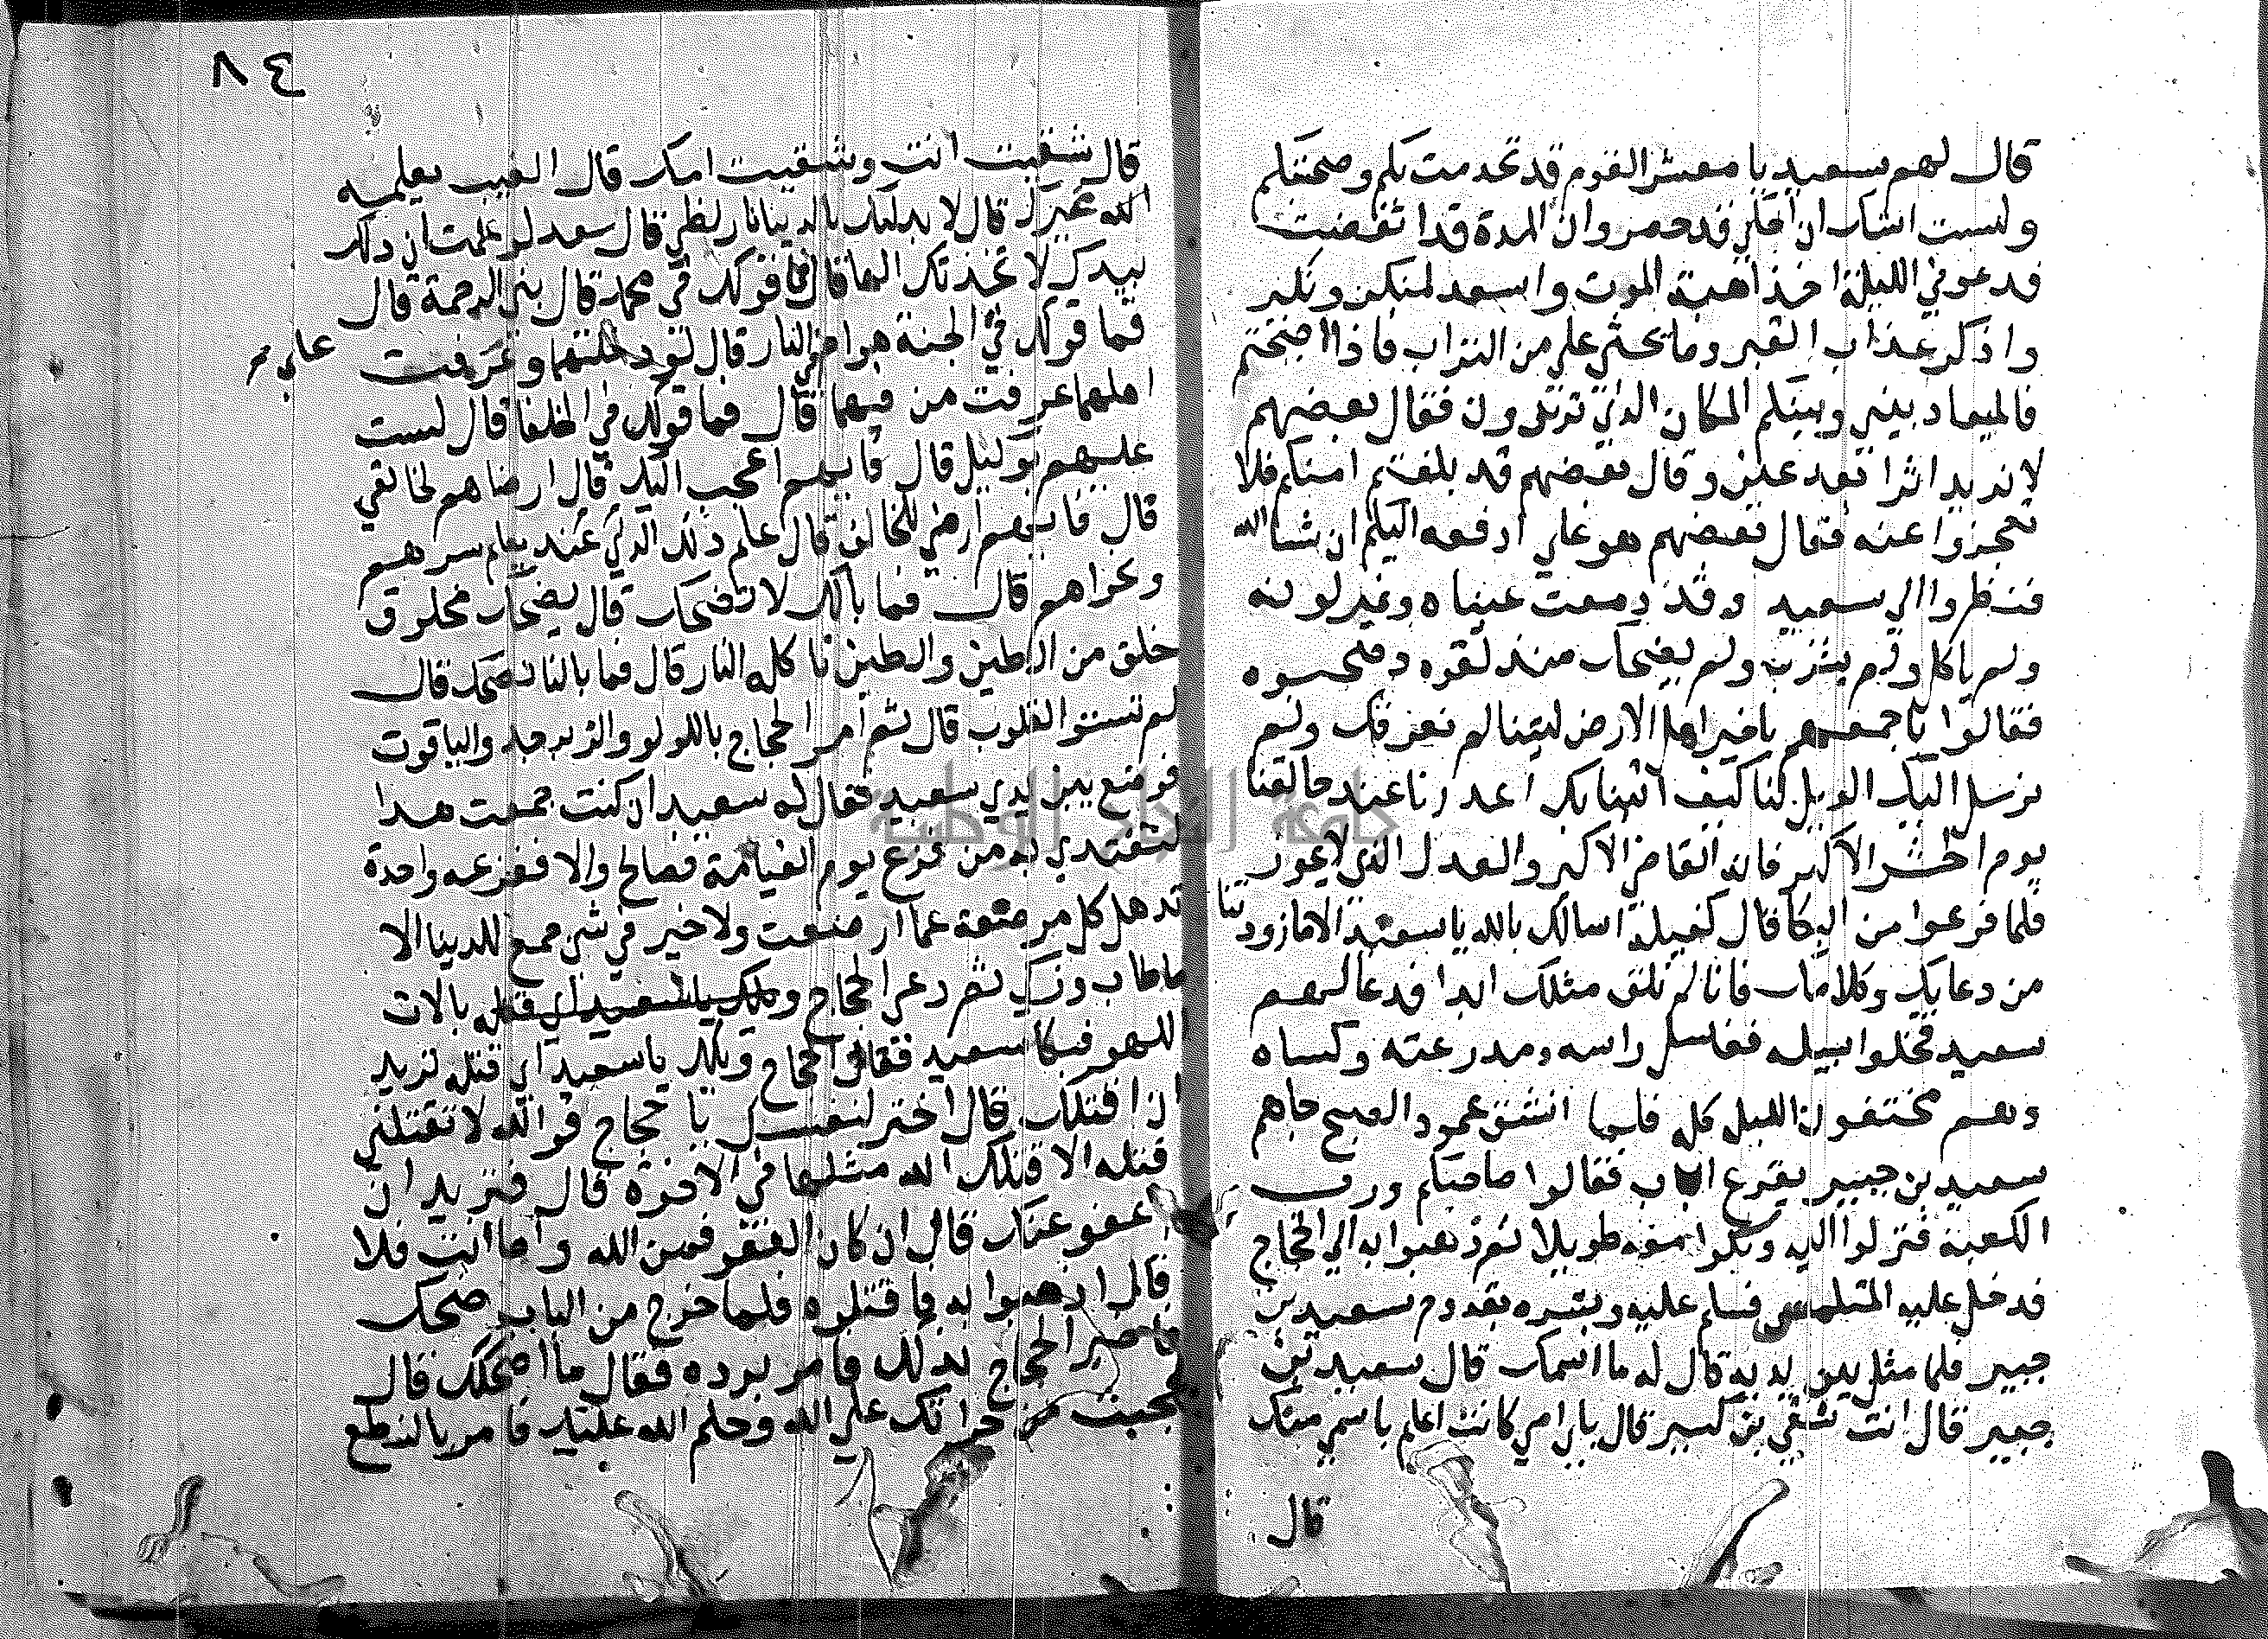 قال لهم سعيد يا معشر القوم قد تحرمت بكم وصحبتكم
ولست اشك ان اجلي قد حضر وان المدة قد انقضت
فدعوني الليلة اخذ اهبة الموت واستعد لمنكر ونكير
واذكر عذاب القبر وما يحثى علي من التراب فاذا اصبحتم
فالميعاد بيني وبينكم المكان الذي تريدون فقال بعضهم
لا نريد اثرا بعد عين وقال بعضهم قد بلغتم امنكم فلا
تعجزوا عنه فقال بعضهم هو علي ادفعه اليكم ان شا الله
فنظروا الى سعيد وقد دمعت عيناه وتغير لونه
ولم ياكل ولم يشرب ولم يضحك منذ لقوه وصحبوه
فقالوا باجمعهم يا خير اهل الارض ليتنا لم نعرفك ولم
نرسل اليك الويل لنا كيف ابتلينا بك اعذرنا عند خالقنا
يوم الحشر الاكبر فانه القاضي الاكبر والعدل الذي لا يجور
فلما فرغوا من البكا قال كفيله اسالك بالله يا سعيد الا ما زودتنا
من دعايك وكلامك فانا لم نلق مثلك ابدا فدعا لهم
سعيد فخلوا سبيله فغسل راسه ومدرعته وكساه
وهم مختفون الليل كله فلما انشق عمود الصبح جاهم
سعيد بن جبير يقرع الباب فقالوا صاحبكم ورب
الكعبة فنزلوا اليه وبكوا معه طويلا ثم ذهبوا به الى الحجاج
فدخل عليه المتلمس فسلم عليه وبشره بقدوم سعيد بن
جبير فلما مثل بين يديه قال له ما اسمك قال سعيد بن
جبير قال انت شقي بن كسير قال بل امي كانت اعلم باسمي منك
قال
٨٤
قال شقيت انت وشقيت امك قال الغيب يعلمه
الله غيرك قال لابدلنك بالدنيا نار لظى قال سعيد لو علمت ان ذلك
بيدك لاتخذتك الها قال فما قولك في محمد قال نبي الرحمة قال
فما قولك في علي هو في الجنة هو ام في النار قال لو دخلتهما وعرفت
اهلهما عرفت من فيهما قال فما قولك في الخلفا قال لست
عليهم بوكيل قال فايهم اعجب اليك قال ارضاهم لخالقي
قال فايهم ارضى للخالق قال علم ذلك الذي عنده يعلم سرهم
ونجواهم قال فما بالك لا تضحك قال يضحك مخلوق
خلق من الطين والطين تاكله النار قال فما بالنا نضحك قال
لم تستو القلوب قال ثم امر الحجاج باللولو والزبرجد والياقوت
فوضع بين يدي سعيد فقال له سعيد ان كنت جمعت هذا
لتفتدي به من فزع يوم القيامة فصالح والا ففزعه واحدة
تذهل كل مرضعة عما ارضعت ولا خير في شي جمع للدنيا الا
ما طاب وزكى ثم دعى الحجاج بالات
اللهو فبكا سعيد فقال الحجاج ويلك يا سعيد اي قتله تريد
ان اقتلك قال اختر لنفسك يا حجاج فوالله لا تقتلني
قتله الا قتلك الله مثلها في الاخرة قال فتريد ان
اعفو عنك قال ان كان العفو فمن الله واما انت فلا
قال اذهبوا به فاقتلوه فلما خرج من الباب ضحك
فاخبر الحجاج بذلك فامر برده فقال ما اضحكك قال
عجبت من جراتك على الله وحلم الله عليك فامر بالنطع
جامعة النجاح الوطنية